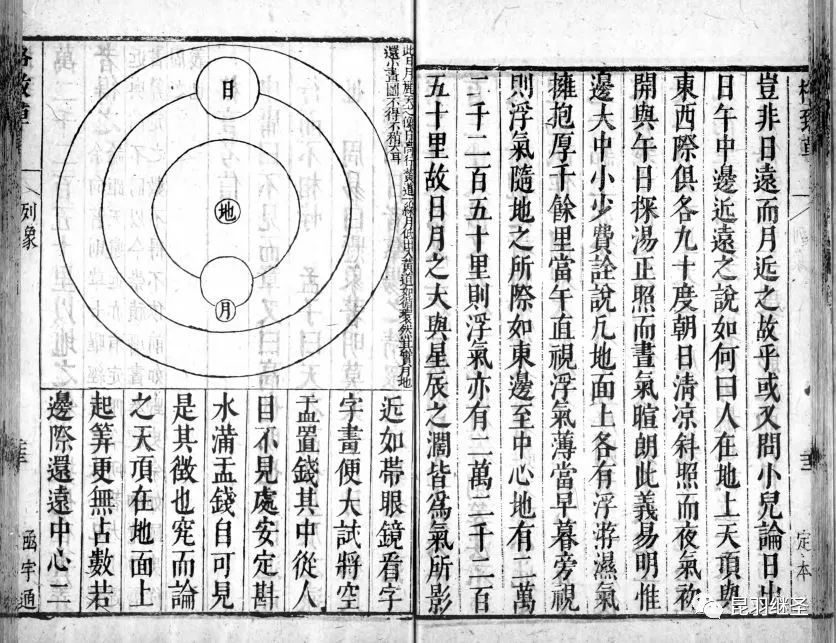 格致草
豈非日遠而月近之故乎或又問小兒論日出
日午中邊近遠之說如何曰人在地上天頂與
東西際俱各九十度朝日清凉斜照而夜氣初
開與午日探湯正照而晝氣暄朗此義易明惟
邊大中小少費詮說凢地面上各有浮游濕氣
擁抱厚千餘里當午直視浮氣薄當早暮旁視
則浮氣隨地之所際如東邊至中心地有二萬
二千二百五十里則浮氣亦有二萬二千二百
五十里故日月之大與星辰之濶皆為氣所影
定本
還小畫圖不得不稍大耳
日
地
月
近如帶眼鏡看字
字畫便大試將空
盂置錢其中從人
目不見處安定斟
水滿盂錢自可見
是其徵也究而論
之天頂在地面上
起筭更無占數若
邊際還遠中心二
格致草
列象
函宇通
昆羽继圣